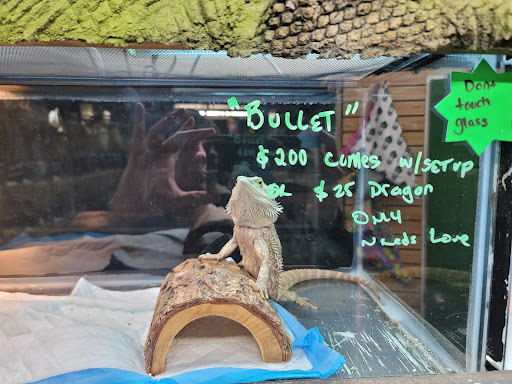 "BULLET"
$200 Comes w/SETUP
OR $25 Dragon
Only
Needs Love
Don't
touch
glass